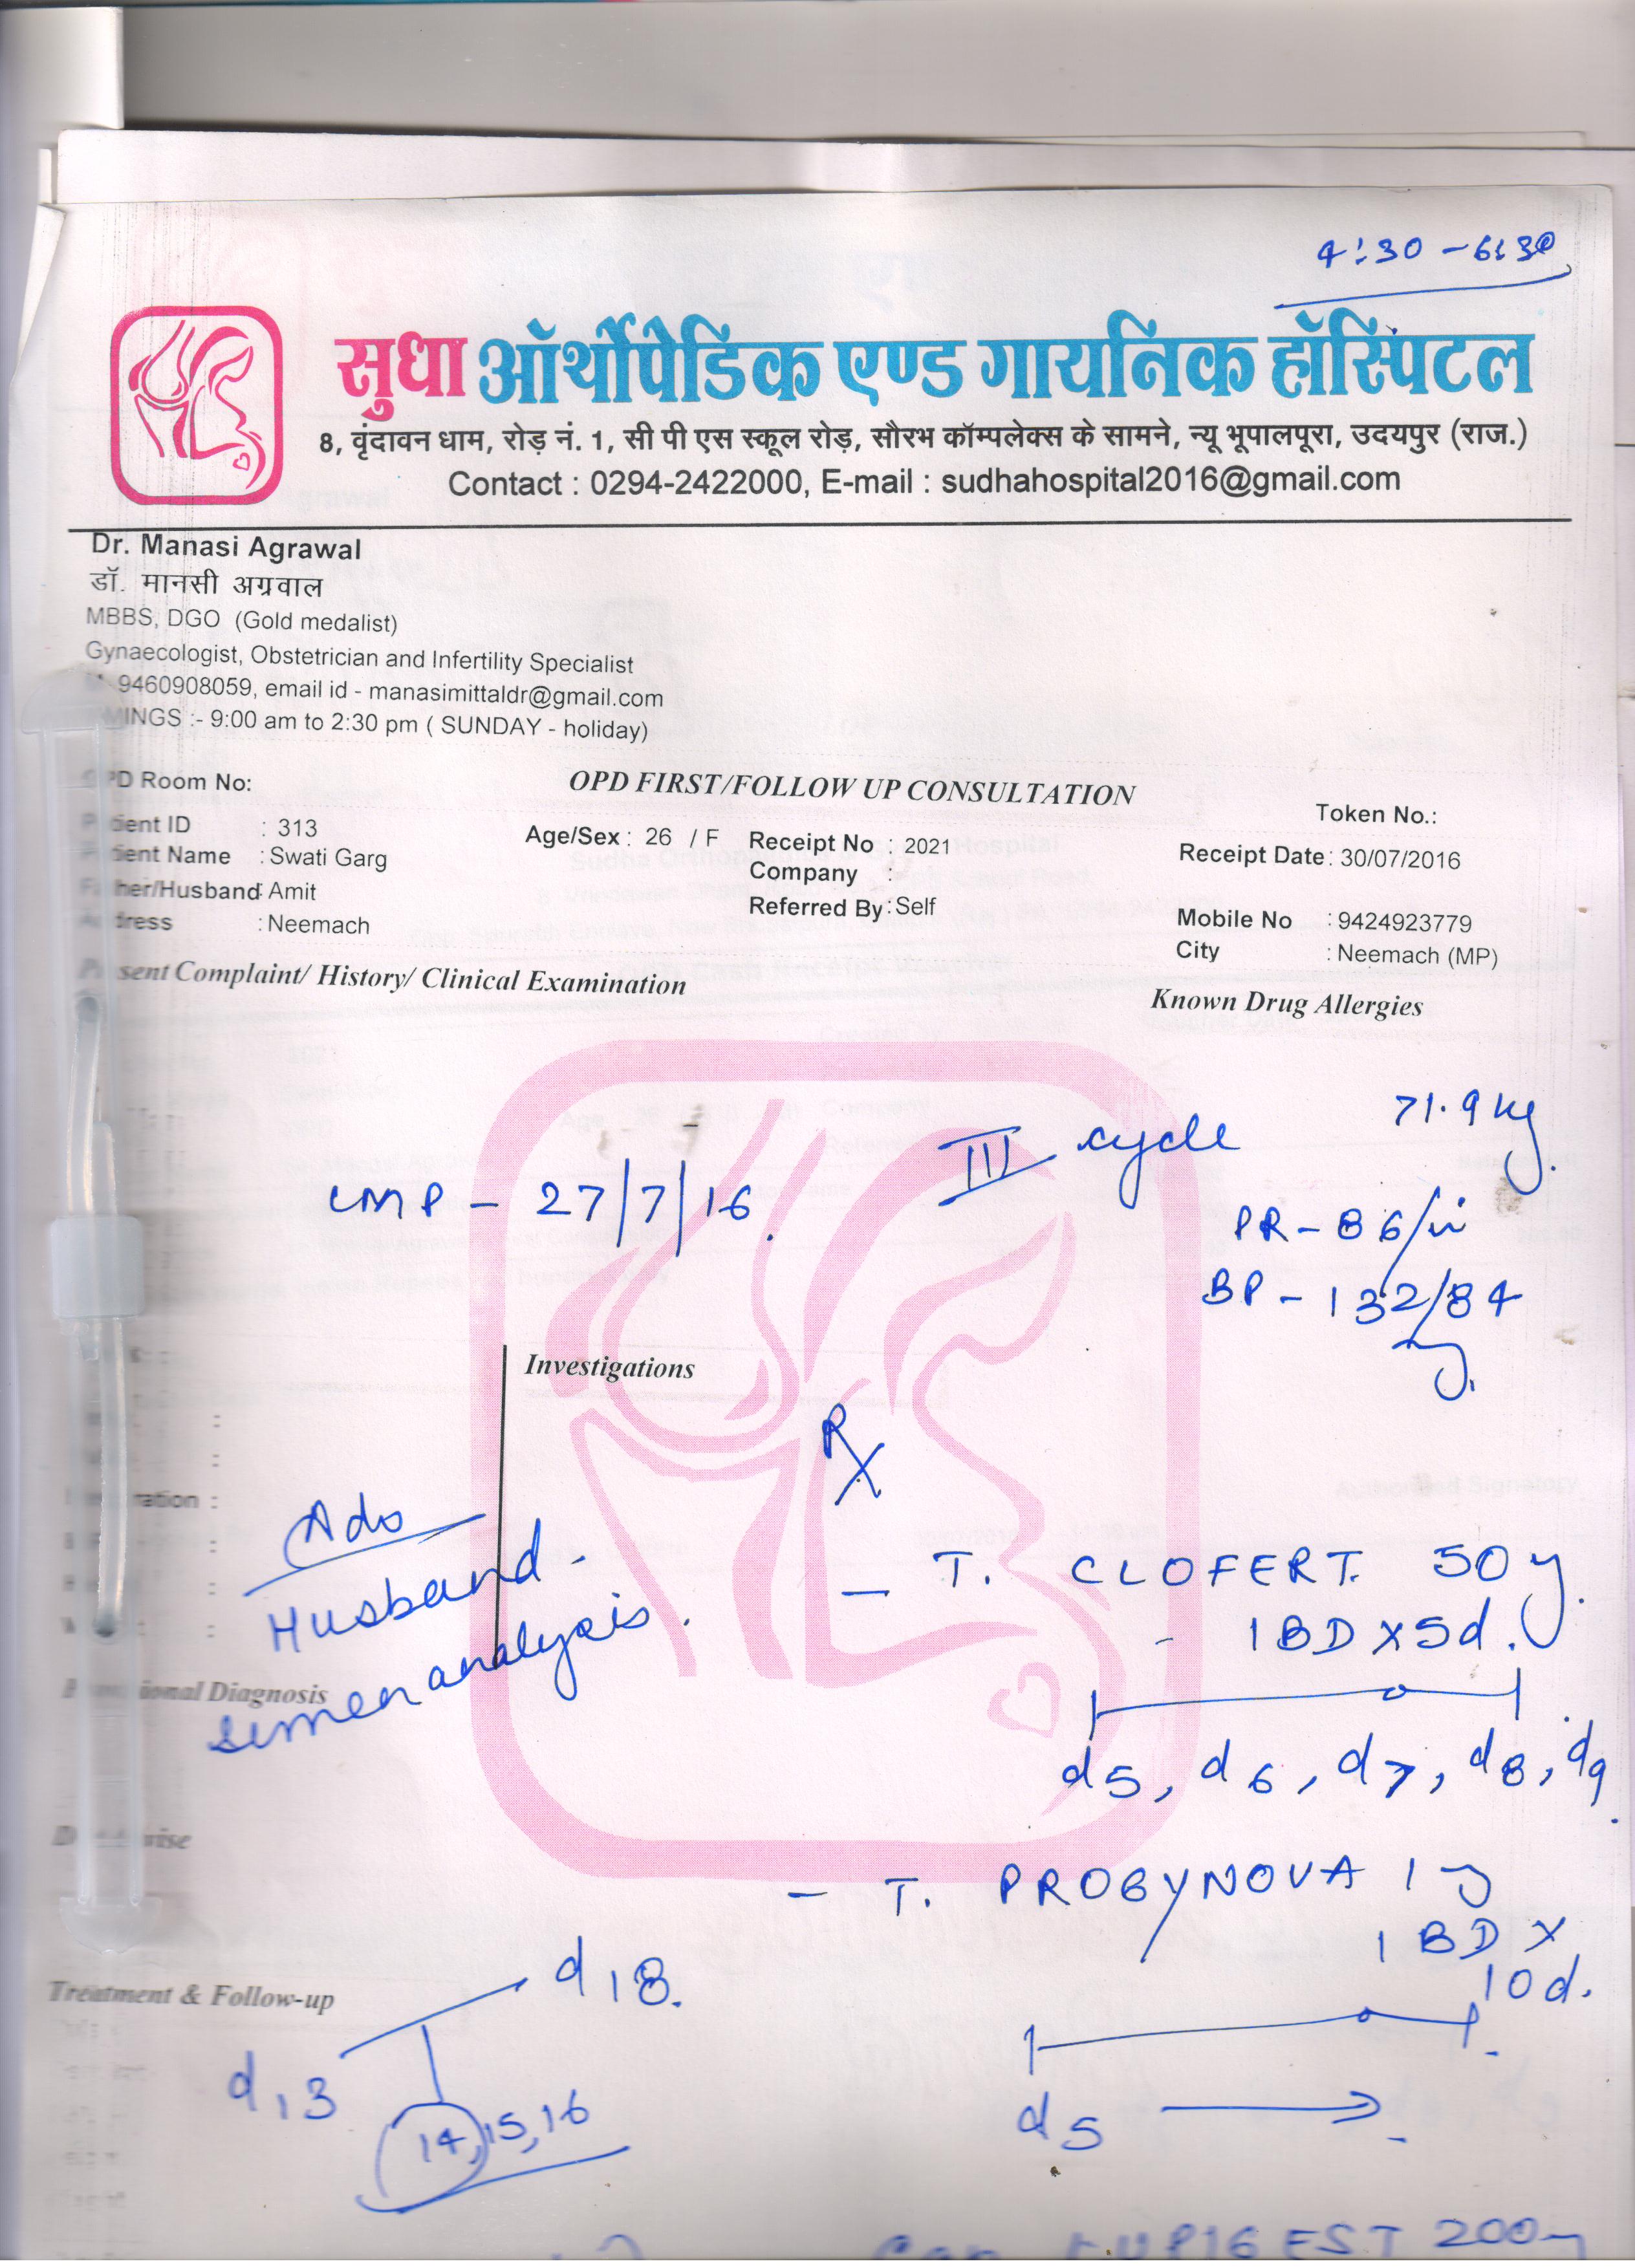 4:30 - 6:30
सुधा ऑर्थोपेडिक एण्ड गायनिक हॉस्पिटल
8, वृंदावन धाम, रोड़ नं. 1, सी पी एस स्कूल रोड़, सौरभ कॉम्पलेक्स के सामने, न्यू भूपालपूरा, उदयपुर (राज.)
Contact : 0294-2422000, E-mail : sudhahospital2016@gmail.com
Dr. Manasi Agrawal
डॉ. मानसी अग्रवाल
MBBS, DGO (Gold medalist)
Gynaecologist, Obstetrician and Infertility Specialist
9460908059, email id - manasimittaldr@gmail.com
MINGS :- 9:00 am to 2:30 pm ( SUNDAY - holiday)
PD Room No:
OPD FIRST/FOLLOW UP CONSULTATION
Token No.:
Patient ID : 313
Age/Sex : 26 / F
Receipt No : 2021
Receipt Date: 30/07/2016
Patient Name : Swati Garg
Company :
Father/Husband: Amit
Referred By: Self
Mobile No : 9424923779
Address : Neemach
City : Neemach (MP)
Present Complaint/ History/ Clinical Examination
Known Drug Allergies
71.9 kg.
III cycle
LMP - 27/7/16.
PR - 86/
BP - 132/84
Investigations
Rx
ration :
Adv
Husband -
semen analysis.
- T. CLOFERT. 50
- 1 BD x 5d.
d5, d6, d7, d8, d9.
Provisional Diagnosis
wise
- T. PROGYNOVA 1
1 BD x
10d.
d5
Treatment & Follow-up
d18.
d13
14, 15, 16
200